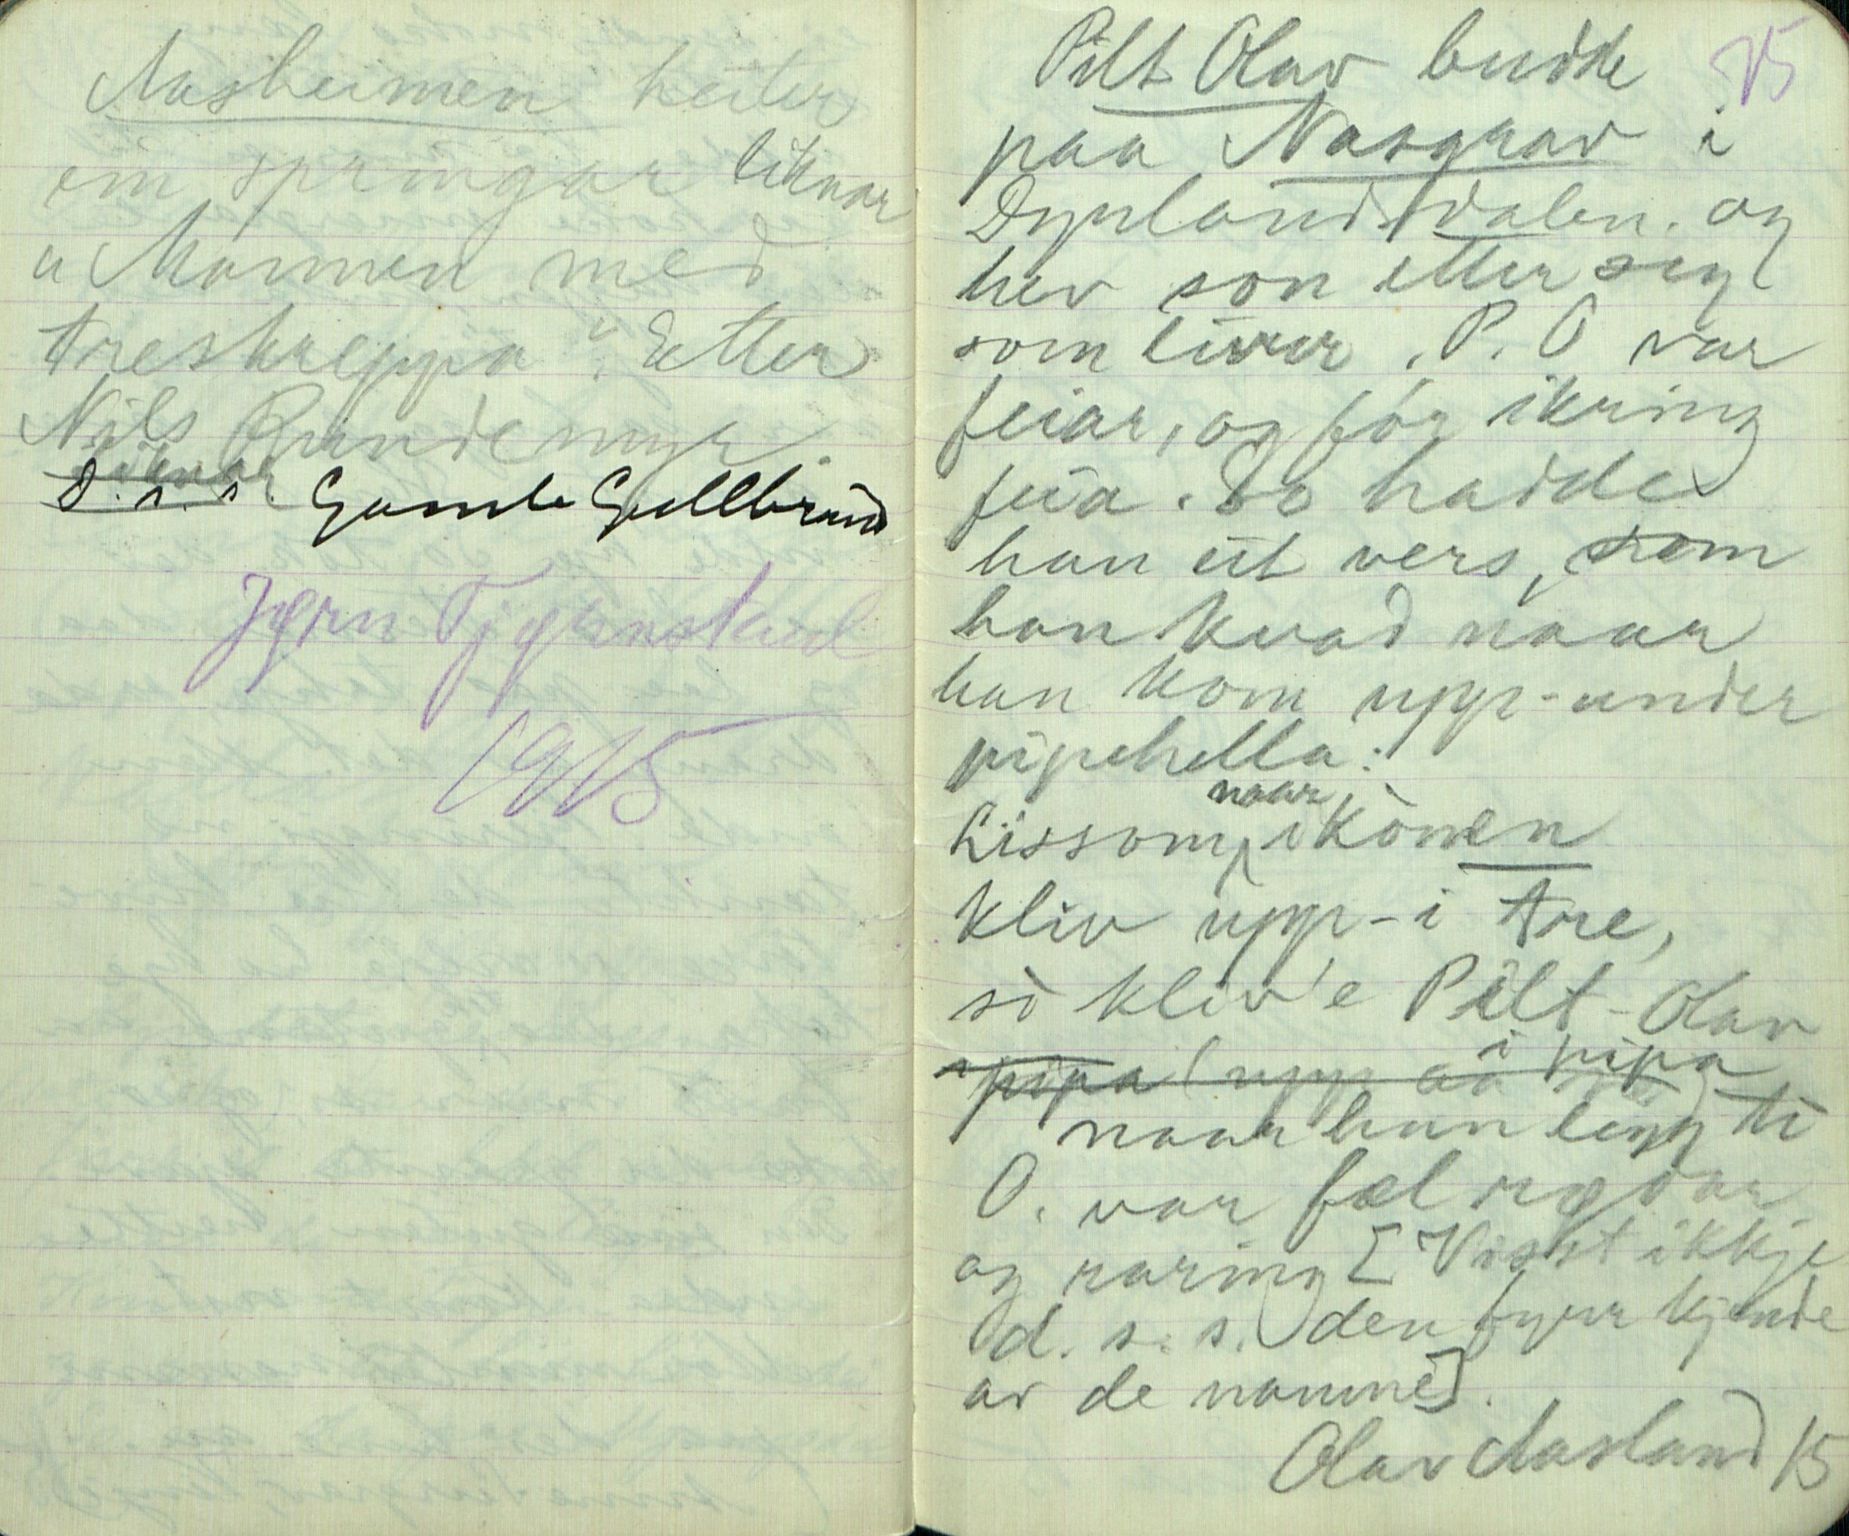 Aasheimen heiter
ein springar liknar
"Mannen med
treskreppa". Etter
Nils Rundemyr.
liknar
d. s. s. Gamle Gullbrand
Jørn Tjynstaul
1915
75
Pilt Olav budde
paa Nasgrav i
Dynlandsdalen. og
hev son etter seg
som liver. P. O var
feiar, og fór ikring
feia. So hadde
han eit vers, som
han kvad naar
han kom upp-under
pipehella:
Lissom naar ikònnen
kliv upp-i tre,
sò kliv'e Pilt-Olav
pipa (upp aa i pipa
naar han legg ti
O. var fæl rødar
og raring [Visst ikkje
d. s. s. den fyrr kjende
av de namne].
Olav Aasland 15